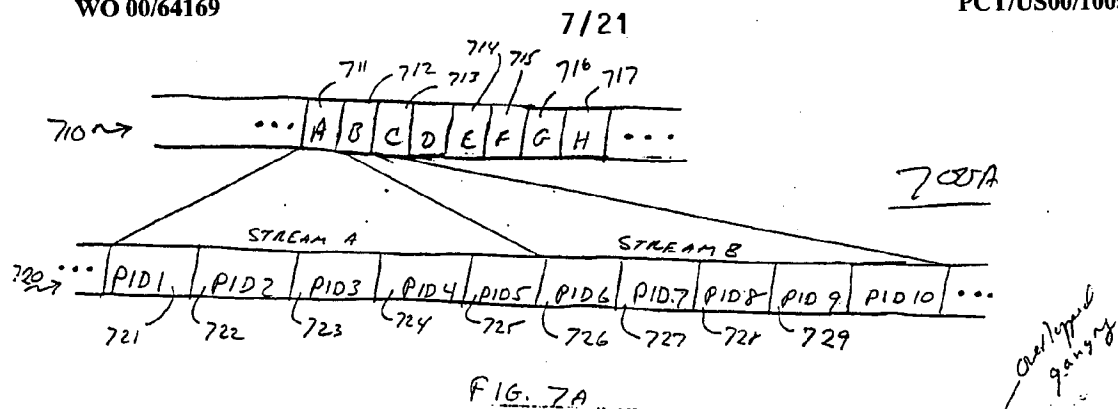 WO 00/64169
PCT/US00/1005
7/21
711 712 713 714 715 716 717
710
... A B C D E F G H ...
700A
STREAM A STREAM B
720 ... PID1 PID2 PID3 PID4 PID5 PID6 PID7 PID8 PID9 PID10 ...
721 722 723 724 725 726 727 728 729
FIG. 7A